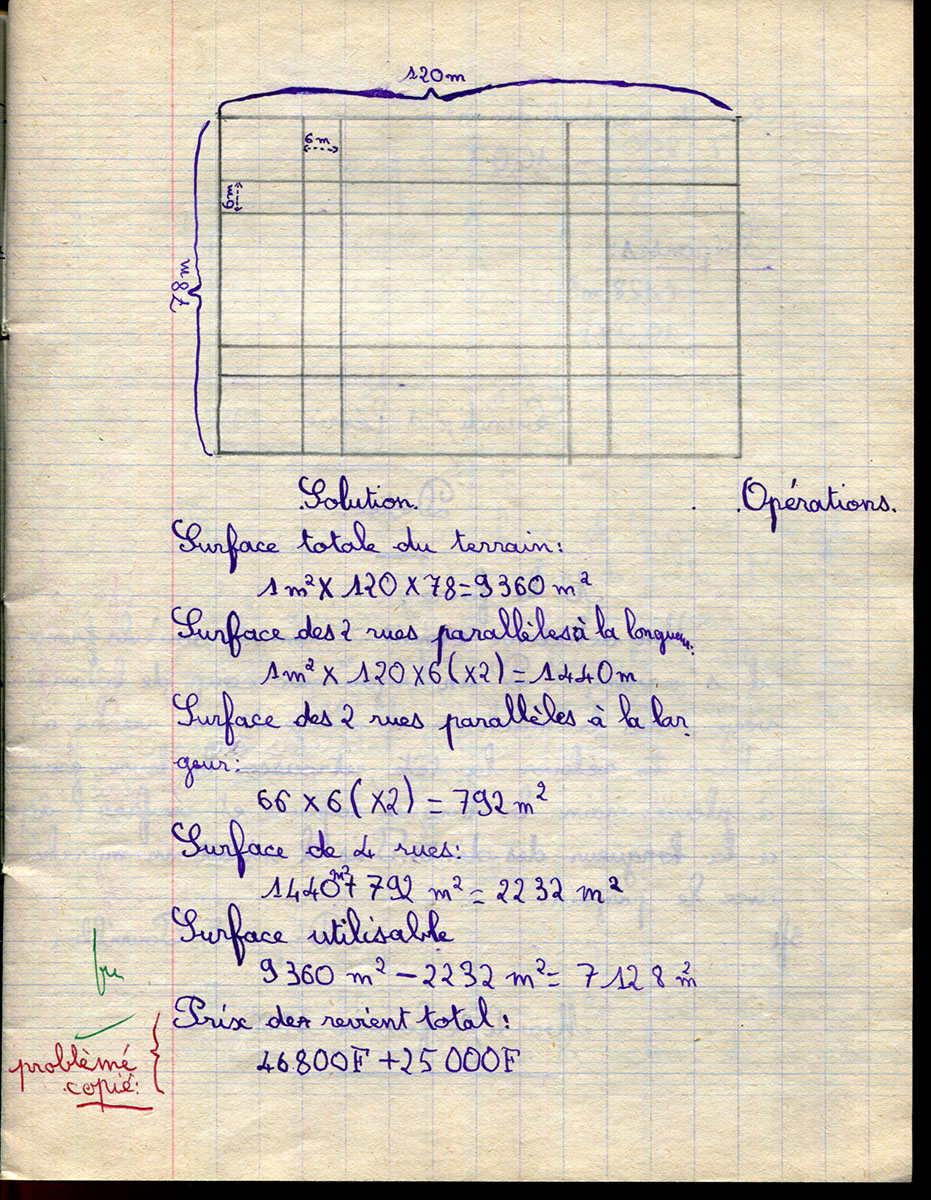 120m
6m
6m
78m
Solution. Opérations.
Surface totale du terrain:
1m² X 120 x 78 = 9360 m²
Surface des 2 rues parallèles à la longueur:
1m² x 120 x 6 (x2) = 1440m
Surface des 2 rues parallèles à la lar
geur:
66 x 6 (x2) = 792 m²
Surface de 4 rues:
1440m² + 792 m² = 2232 m²
Surface utilisable
9360 m² – 2232 m² = 7128 m²
vu
Prix de revient total:
problèmé
copié:
46800F + 25000F